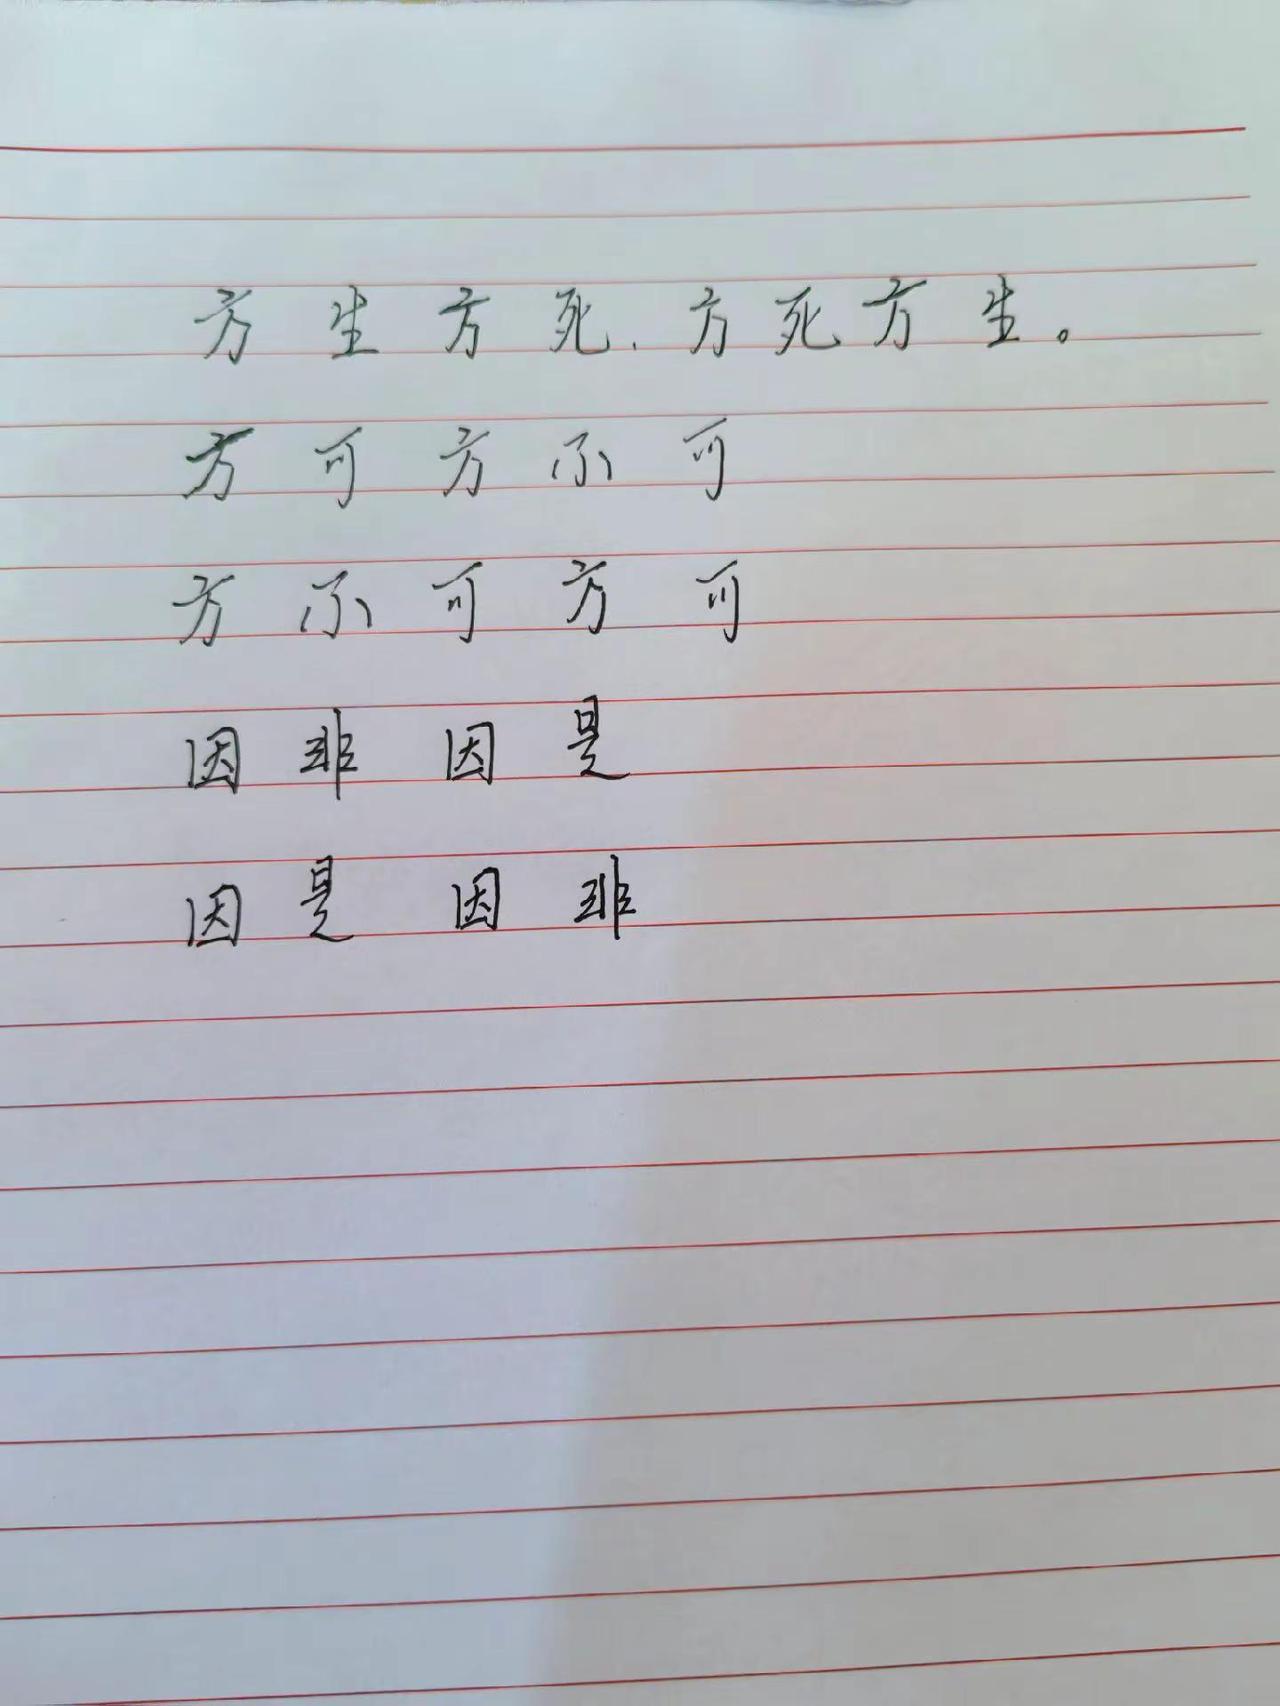 方生方死、方死方生。
方可方不可
方不可方可
因非因是
因是因非